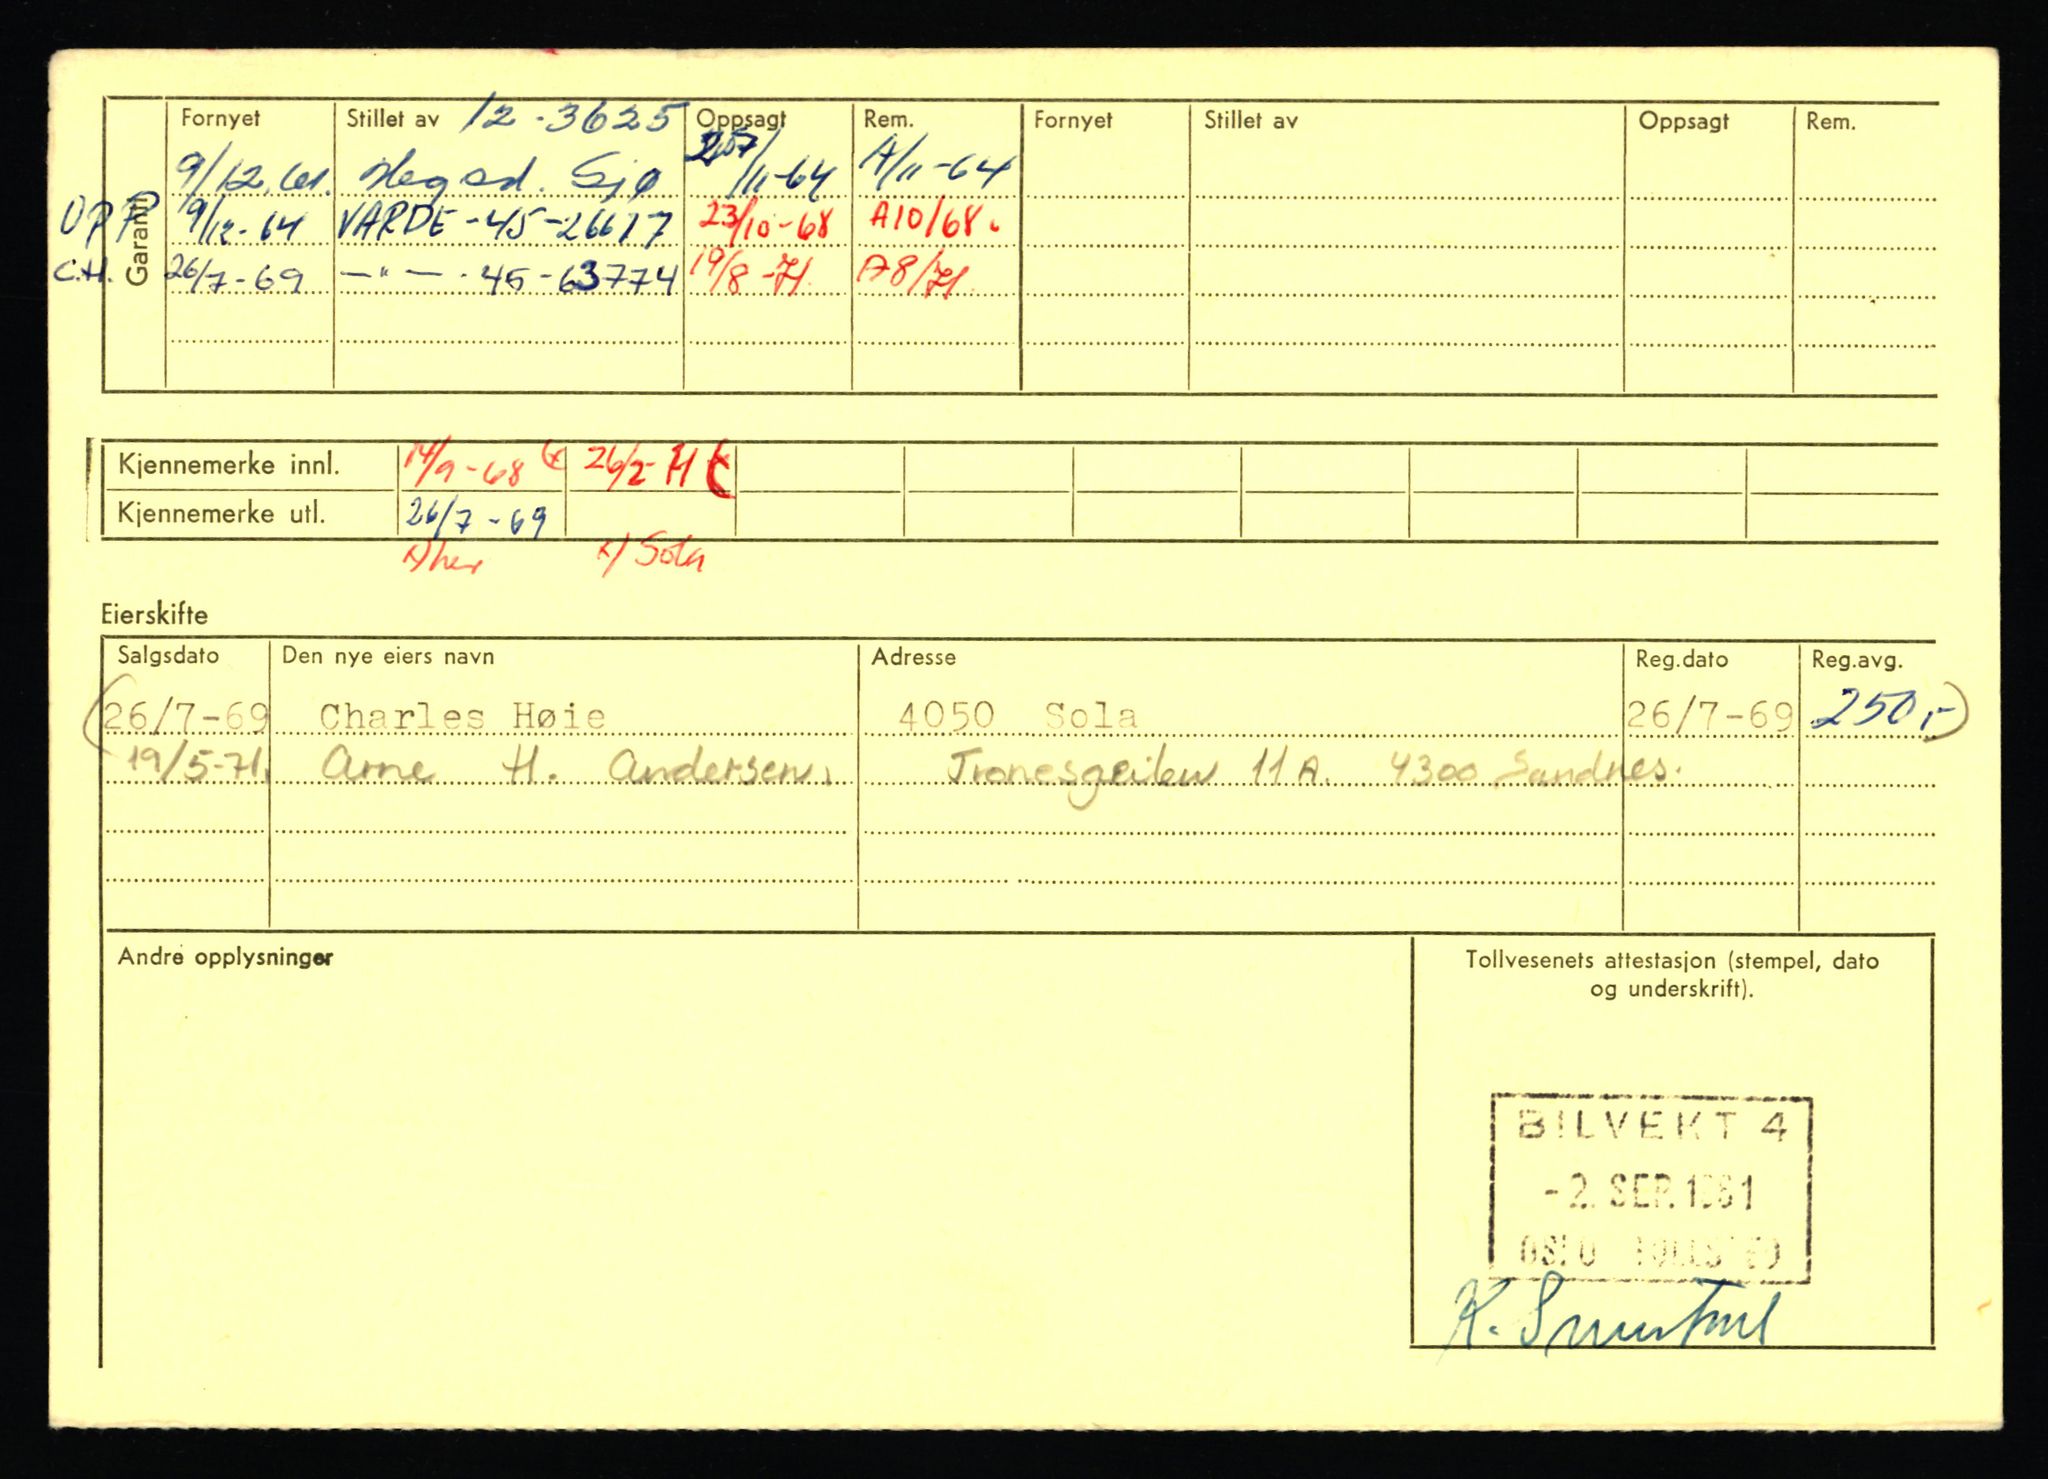 Fornyet Stillet av 12-3625 Oppsagt Rem. Fornyet Stillet av Oppsagt Rem.
9/12. 61. Sjø /11-64 A/11-64
OPP 9/12-64 VARDE-45-26617 23/10-68 A10/68.
C.H. 26/7-69 —"— . 45-63774 19/8-71. A8/71.
Garanti
Kjennemerke innl. 14/9-68 26/2-71
Kjennemerke utl. 26/7-69
x) her x) Sola
Eierskifte
Salgsdato Den nye eiers navn Adresse Reg.dato Reg.avg.
(26/7-69 Charles Høie 4050 Sola 26/7-69 250,-)
19/5-71. Arne H. Andersen, Tronesgeilen 11A. 4300 Sandnes.
Andre opplysninger
Tollvesenets attestasjon (stempel, dato
og underskrift).
BILVEKT 4
-2. SEP. 1961
OSLO TOLLSTED
K.